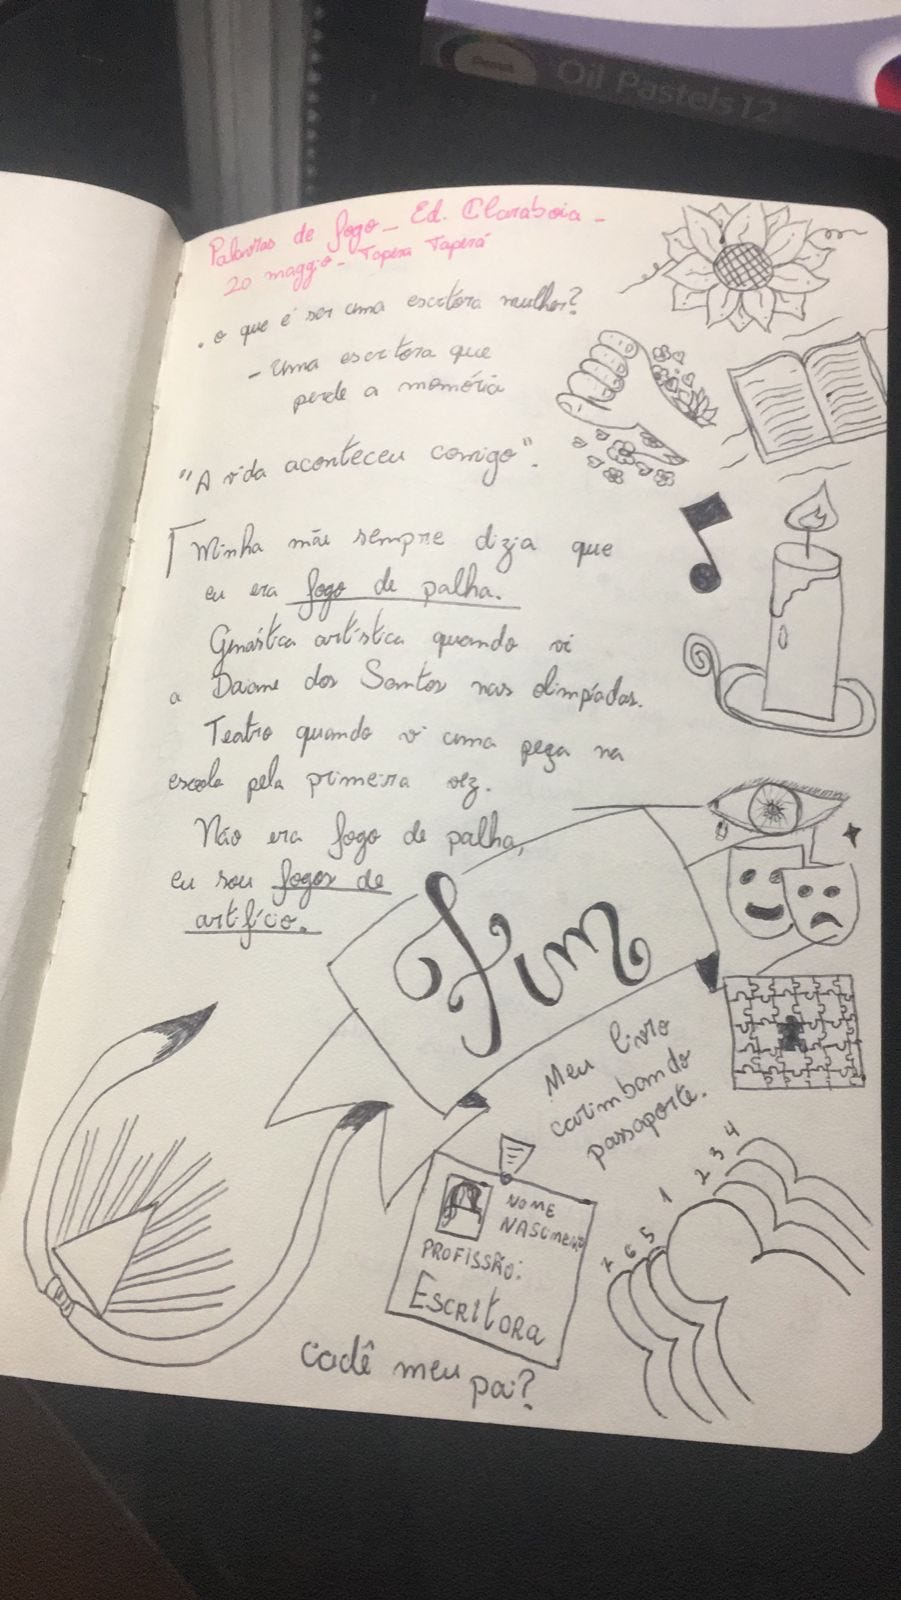 Oil Pastels 12
Palavras de fogo - Ed. Claraboia -
20 maggio - Tapera Taperá
. o que é ser uma escritora mulher?
- Uma escritora que
perde a memória
"A vida aconteceu comigo".
Minha mãe sempre dizia que
eu era fogo de palha.
Ginástica artística quando vi
a Daiane dos Santos nas olimpíadas.
Teatro quando vi uma peça na
escola pela primeira vez.
Não era fogo de palha,
eu sou fogos de
artifício.
Fim
Meu livro
carimbando
passaporte.
1 2 3 4
7 6 5
NOME
NASCIMENTO
PROFISSÃO:
ESCRITORA
cadê meu pai?